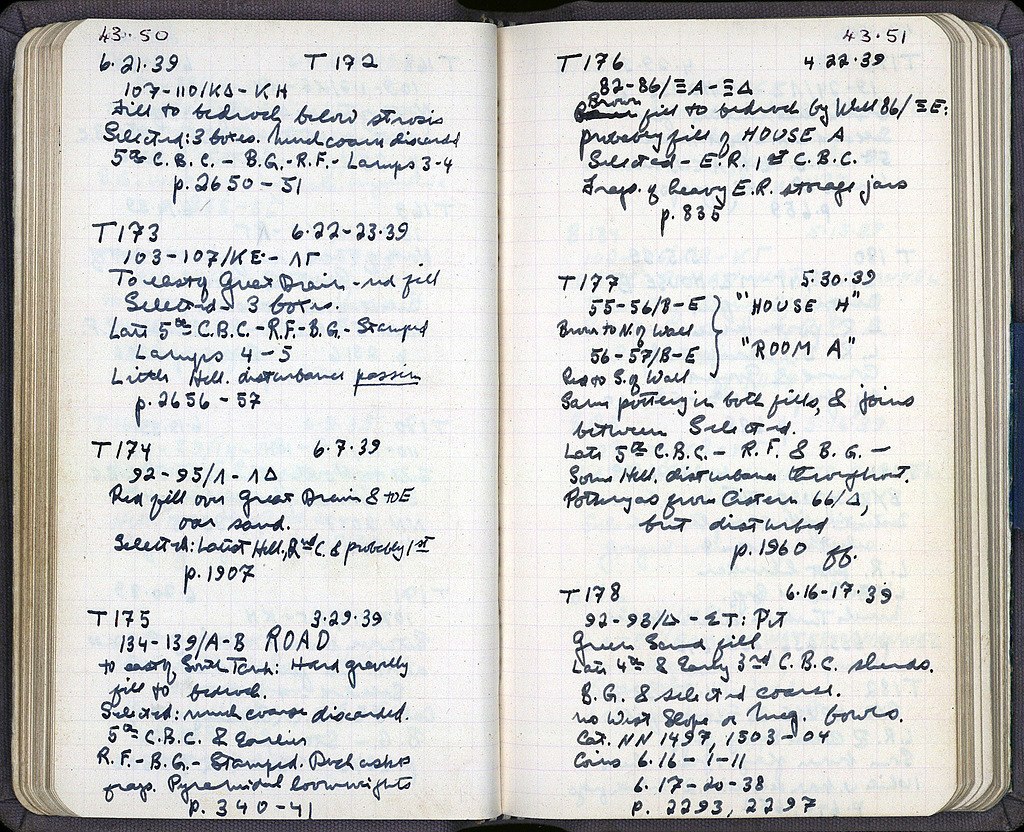 43·50
6·21·39 T 172
107-110/ΚΔ - ΚΗ
Fill to bedrock below strosis
Selected: 3 boxes. Much coarse discarded
5th C.B.C. - B.G.-R.F.- Lamps 3-4
p. 2650-51
T 173 6·22-23·39
103-107/ΚΕ - ΛΓ
To east of Great Drain - red fill
Selected - 3 boxes.
Late 5th C.B.C.-R.F.-B.G.- Stamped
Lamps 4-5
Little Hell. disturbance passim
p. 2656-57
T 174 6·7·39
92-95/Λ - ΛΔ
Red fill over Great Drain & to E
over sand.
Selected: Latest Hell., 2nd C. & probably 1st
p. 1907
T 175 3·29·39
134-139/Α-Β ROAD
to east of South Tank: Hard gravelly
fill to bedrock.
Selected: much coarse discarded.
5th C.B.C. & Earlier
R.F.-B.G.- Stamped.
frags. Pyramidal loomweights
p. 340-41
43·51
T 176 4·22·39
82-86/ΞΑ-ΞΔ
Brown fill to bedrock by Well 86/ΞΕ:
probably fill of HOUSE A
Selected - E.R. 1st C.B.C.
Frags. of heavy E.R. storage jars
p. 835
T 177 5·30·39
55-56/Β-Ε "HOUSE H"
Brown to N. of Wall
56-57/Β-Ε "ROOM A"
Red to S. of Wall
Same pottery in both fills, & joins
between Selected.
Late 5th C.B.C. - R.F. & B.G. -
Some Hell. disturbance throughout.
Pottery as from Cistern 66/Δ,
but disturbed
p. 1960 ff.
T 178 6·16-17·39
92-93/Δ - ΣΤ: Pit
Green Sand fill
Late 4th & Early 3rd C.B.C. sherds.
B.G. & selected coarse.
no West Slope or Meg. bowls.
Cat. NN 1497, 1503-04
Coins 6·16-1-11
6·17-20-38
p. 2293, 2297